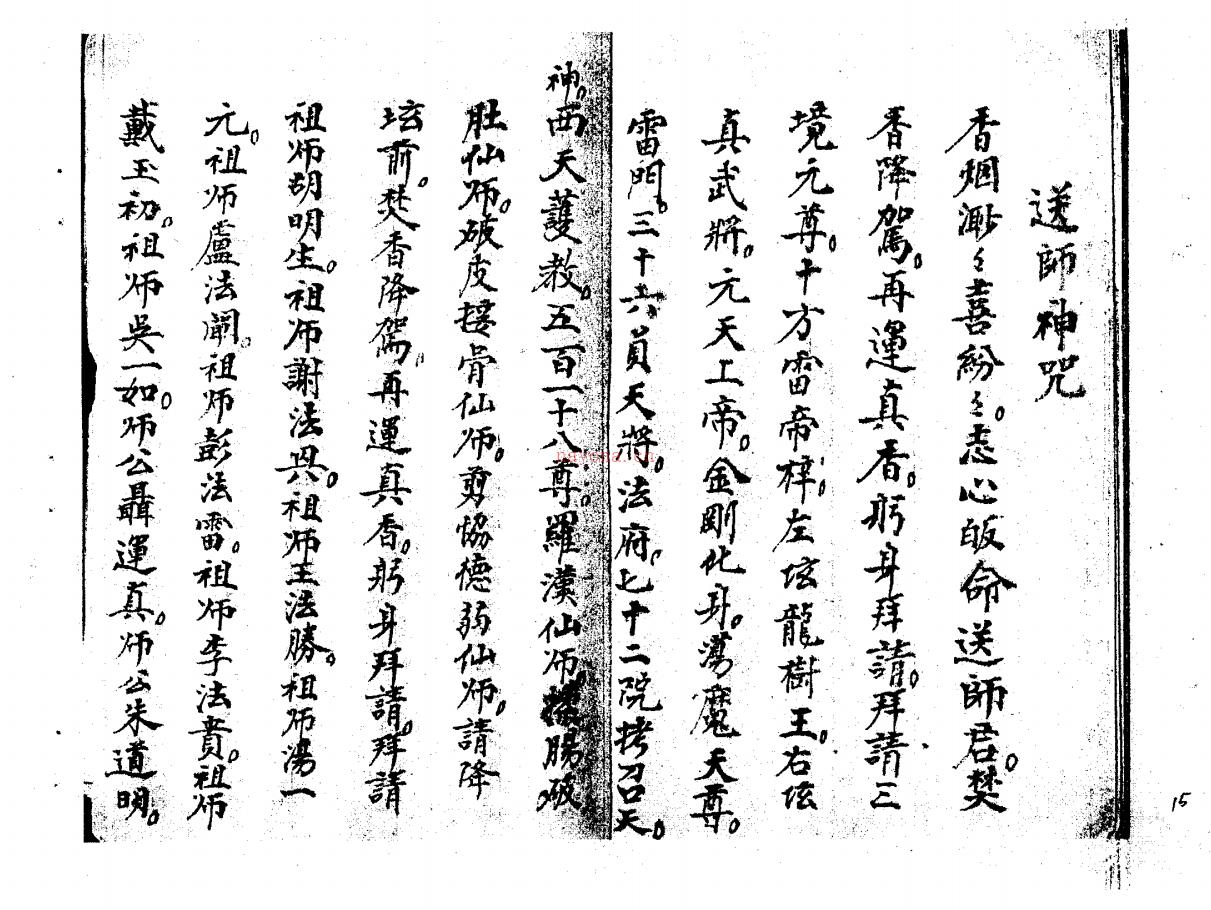 送師神咒
香烟渺々喜紛々。志心皈命送師君。焚
香降駕。再運真香。躬身拜請。拜請三
境元尊。十方雷帝樟。左坛龍樹王。右坛
真武將。元天上帝。金剛化身。蕩魔天尊。
雷門。三十六員天將。法府。七十二院拷召天。
神。西天護教。五百一十八尊。羅漢仙师 腸破
肚仙师。破皮接骨仙师。剪恊德弱仙师。請降
坛前。焚香降駕。再運真香。躬身拜請。拜請
祖师胡明生。祖师謝法興。祖师王法勝。祖师湯一
元。祖师盧法闡。祖师彭法雷。祖师李法貴。祖师
戴玉初。祖师吳一如。师公聶運真。师公朱道明。
15